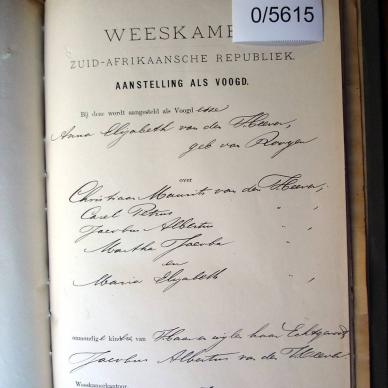 0/5615
WEESKAME
ZUID-AFRIKAANSCHE REPUBLIEK.
AANSTELLING ALS VOOGD.
Bij deze wordt aangesteld als Voogd esse
Anna Elizabeth van der Heever,
geb van Rooyen
over
Christiaan Maurits van der Heever,
Carel Petrus " "
Jacobus Albertus " "
Martha Jacoba
en
Maria Elizabeth " "
onmondige kinders van Haar en wijlen haar Echtgenoot
Jacobus Albertus van der Heever
Weeskamerkantoor